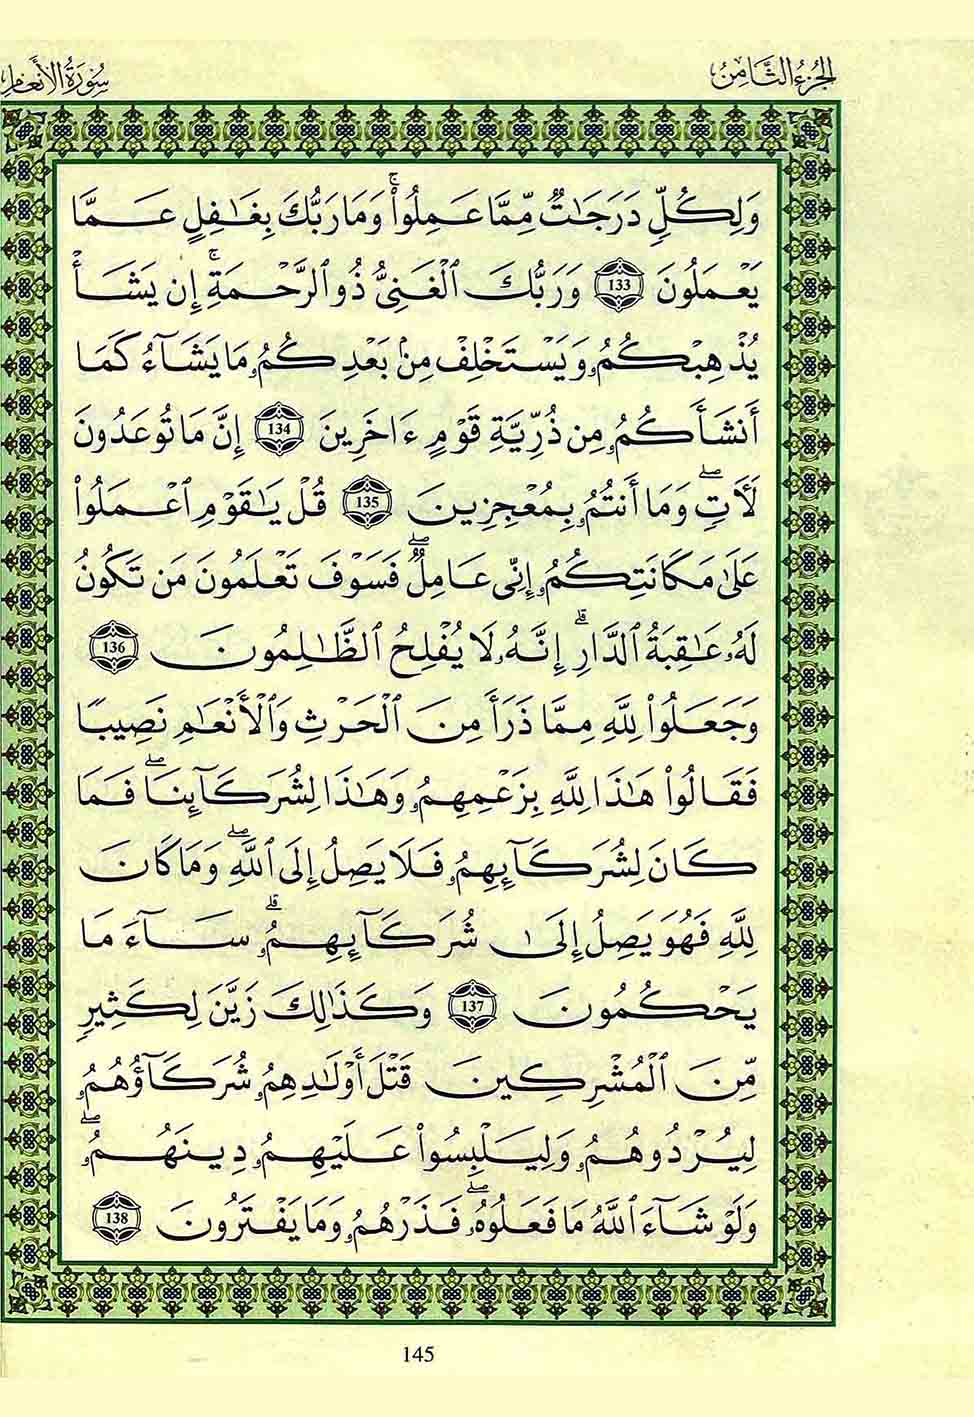 الجزء الثامن
سورة الأنعام
وَلِكُلٍّ دَرَجَٰتٌ مِّمَّا عَمِلُواْۚ وَمَا رَبُّكَ بِغَٰفِلٍ عَمَّا
يَعْمَلُونَ 133 وَرَبُّكَ ٱلْغَنِىُّ ذُو ٱلرَّحْمَةِۚ إِن يَشَأْ
يُذْهِبْكُمُۥ وَيَسْتَخْلِفْ مِنۢ بَعْدِكُمُۥ مَا يَشَآءُ كَمَا
أَنشَأَكُمُۥ مِن ذُرِّيَّةِ قَوْمٍ ءَاخَرِينَ 134 إِنَّ مَا تُوعَدُونَ
لَأٓتٍۖ وَمَا أَنتُمُۥ بِمُعْجِزِينَ 135 قُلْ يَٰقَوْمِ ٱعْمَلُواْ
عَلَىٰ مَكَانَتِكُمُۥ إِنِّى عَامِلٌۖ فَسَوْفَ تَعْلَمُونَ مَن تَكُونُ
لَهُۥ عَٰقِبَةُ ٱلدَّارِۗ إِنَّهُۥ لَا يُفْلِحُ ٱلظَّٰلِمُونَ 136
وَجَعَلُواْ لِلَّهِ مِمَّا ذَرَأَ مِنَ ٱلْحَرْثِ وَٱلْأَنْعَٰمِ نَصِيبًا
فَقَالُواْ هَٰذَا لِلَّهِ بِزَعْمِهِمُۥ وَهَٰذَا لِشُرَكَآئِنَاۖ فَمَا
كَانَ لِشُرَكَآئِهِمُۥ فَلَا يَصِلُ إِلَى ٱللَّهِۖ وَمَا كَانَ
لِلَّهِ فَهُوَ يَصِلُ إِلَىٰ شُرَكَآئِهِمُۥۗ سَآءَ مَا
يَحْكُمُونَ 137 وَكَذَٰلِكَ زَيَّنَ لِكَثِيرٍ
مِّنَ ٱلْمُشْرِكِينَ قَتْلَ أَوْلَٰدِهِمُۥ شُرَكَآؤُهُمُۥ
لِيُرْدُوهُمُۥ وَلِيَلْبِسُواْ عَلَيْهِمُۥ دِينَهُمُۥۖ
وَلَوْ شَآءَ ٱللَّهُ مَا فَعَلُوهُۥۖ فَذَرْهُمُۥ وَمَا يَفْتَرُونَ 138
145